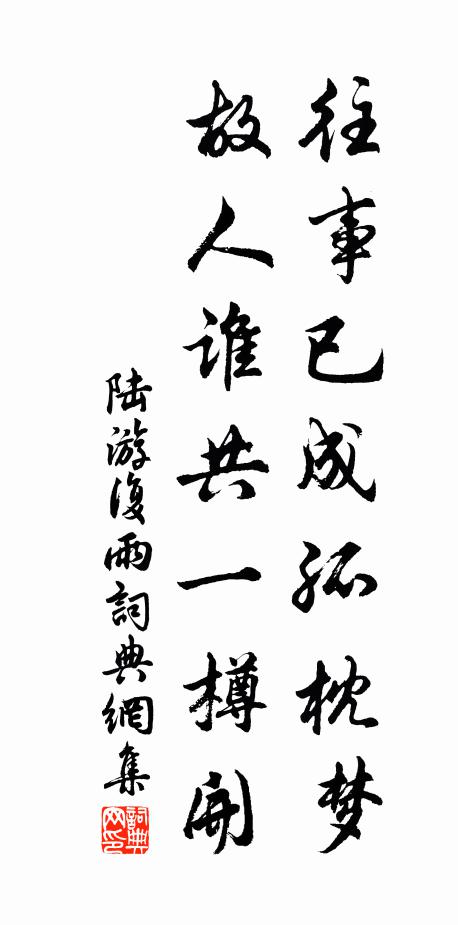 往事已成孤枕梦
故人谁共一樽開
陆游復雨詞典網集
詞典网印